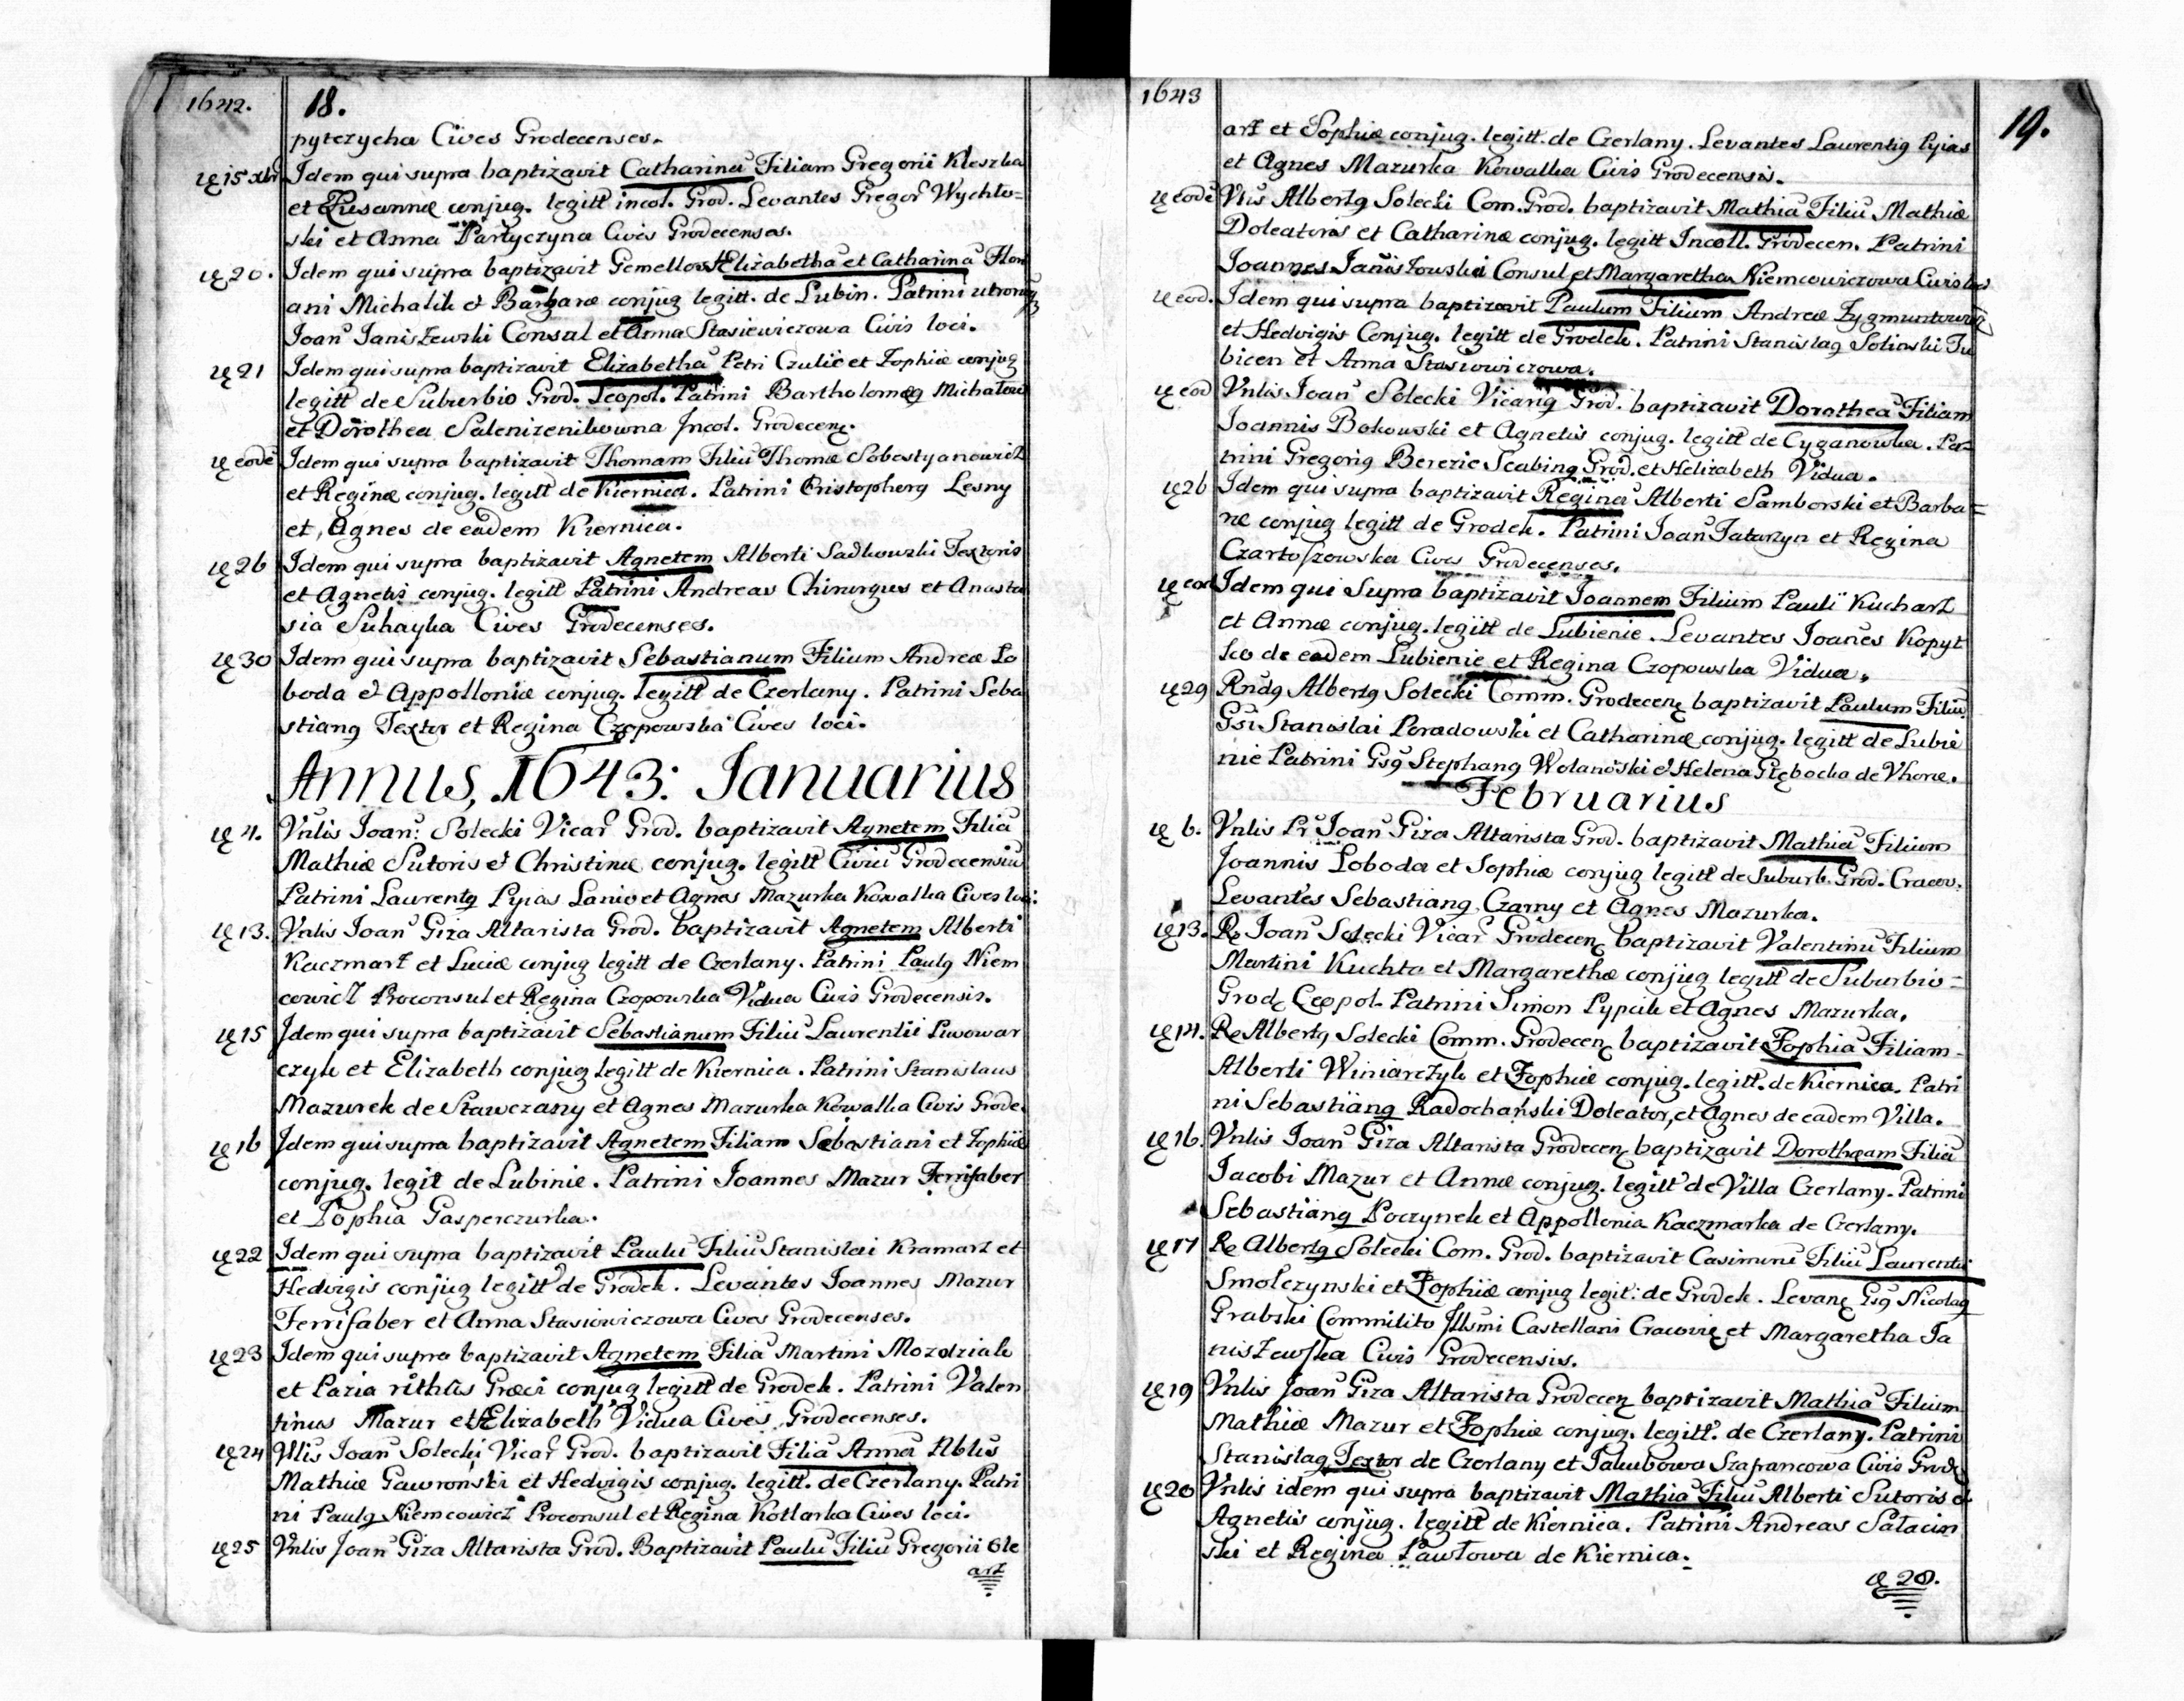 1642. 18.
pytczycha Cives Grodecenses.
15 xbr Idem qui supra baptizavit Catharinā Filiam Gregorii Kleszka
et Zusannæ conjug. legitt incol. Grod. Levantes Gregor Wychło=
ski et Anna Partyczyna Cives Grodecenses.
20. Idem qui supra baptizavit Gemellos Elizabetha et Catharina Flori
ani Michalik et Barbaræ conjug legitt. de Lubin. Patrini utronq
Joan Janiszewski Consul et Anna Stasiewiczowa Civis loci.
21 Idem qui supra baptizavit Elizabethā Petri Czulic et Zophiæ conjug
legitt de Suburbio Grod. Leopol. Patrini Bartholomeg Michałow
et Dorothea Salenizenikowna Incol. Grodecen.
eode Idem qui supra baptizavit Thomam Filiū Thomæ Sobestyanowicz
et Reginæ conjug. legitt de Kiernica. Patrini Cristopherg Lesny
et Agnes de eadem Kiernica.
26 Idem qui supra baptizavit Agnetem Alberti Sadkowski Textoris
et Agnetis conjug. legitt Patrini Andreas Chirurgus et Anasta
sia Suhayka Cives Grodecenses.
30 Idem qui supra baptizavit Sebastianum Filium Andreæ Lo
boda et Appolloniæ conjug. legitt de Czerlany. Patrini Seba
stiang Textor et Regina Czopowska Cives loci.
Annus, 1643: Januarius
4. Vnlis Joan: Solecki Vicar Grod. baptizavit Agnetem Filiā
Mathiæ Sutoris et Christinæ conjug. legitt Civiū Grodecensiū
Patrini Laurentg Pyias Lanio et Agnes Mazurka Kowalka Cives loci:
13. Vnlis Joan Giza Altarista Grod. baptizavit Agnetem Alberti
Kaczmarz et Luciæ conjug legitt de Czerlany. Patrini Paulg Niem
cowicz Proconsul et Regina Czopowska Vidua Civis Grodecensis.
15 Idem qui supra baptizavit Sebastianum Filiū Laurentii Piwowar
czyk et Elizabeth conjug legitt de Kiernica. Patrini Stanislaus
Mazurek de Stawczany et Agnes Mazurka Kowalka Civis Grode.
16 Idem qui supra baptizavit Agnetem Filiam Sebastiani et Zophiæ
conjug. legit de Lubinie. Patrini Joannes Mazur Ferrifaber
et Zophia Gasperczurka.
22 Idem qui supra baptizavit Paulū Filiū Stanislai Kramarz et
Hedvigis conjug legitt de Grodek. Levantes Joannes Mazur
Ferrifaber et Anna Stasiowiczowa Cives Grodecenses.
23 Idem qui supra baptizavit Agnetem Filiā Martini Mozdziak
et Pazia rithūs Græci conjug legitt de Grodek. Patrini Valen
tinus Mazur et Elizabeth Vidua Cives Grodecenses.
24 Vllis Joan Solecki Vicar Grod. baptizavit Filiā Annā Nblis
Mathiæ Gawronski et Hedvigis conjug. legitt. de Czerlany. Patri
ni Paulg Niemcowicz Proconsul et Regina Kotlarka Cives loci.
25 Vnlis Joan Giza Altarista Grod. Baptizavit Paulū Filiū Gregorii Ole
arz
1643 19.
arz et Sophiæ conjug. legitt. de Czerlany. Levantes Laurentig Pyias
et Agnes Mazurka Kowalka Civis Grodecensis.
eode Vlis Albertg Solecki Com. Grod. baptizavit Mathiā Filiū Mathiæ
Doleatoris et Catharinæ conjug. legitt Incoll. Grodecen. Patrini
Joannes Janiszowski Consul et Margaretha Niemcowiczowa Civis loci
eod. Idem qui supra baptizavit Paulum Filium Andreæ Zygmuntowicz
et Hedvigis Conjug. legitt de Grodek. Patrini Stanislag Solinski Tu
bicen et Anna Stasiowiczowa.
eod Vnlis Joan Solecki Vicarig Grod. baptizavit Dorotheā Filiam
Joannis Bokowski et Agnetis conjug. legitt de Cyganowka. Pa=
trini Gregorig Berezic Scabing Grod. et Helizabeth Vidua.
26 Idem qui supra baptizavit Reginā Alberti Samborski et Barba=
ræ conjug legitt de Grodek. Patrini Joan Tatarzyn et Regina
Czartoszowska Cives Grodecenses.
eod Idem qui Supra baptizavit Joannem Filium Pauli Kucharz
et Annæ conjug. legitt de Lubienie. Levantes Joañes Kopyt
ko de eadem Lubienie et Regina Czopowska Vidua.
29 Rndg Albertg Solecki Comm. Grodecen baptizavit Paulum Filiū
Gsi Stanislai Poradowski et Catharinæ conjug. legitt de Lubie
nie Patrini Gsg Stephang Wolanoski et Helena Głębocka de Vhorce.
Februarius
6. Vnlis Pr Joan Giza Altarista Grod. baptizavit Mathiā Filium
Joannis Loboda et Sophiæ conjug legitt de Suburb. Grod. Cracov.
Levantes Sebastiang Czarny et Agnes Mazurka.
13. R Joan Solecki Vicar Grodecen baptizavit Valentinū Filium
Martini Kuchta et Margarethæ conjug legitt de Suburbio=
Grod Leopol. Patrini Simon Pypcik et Agnes Mazurka.
14. R Albertg Solecki Comm. Grodecen baptizavit Zophiā Filiam
Alberti Winiarczyk et Zophiæ conjug. legitt. de Kiernica. Patri
ni Sebastiang Radochański Doleator, et Agnes de eadem Villa.
16. Vnlis Joan Giza Altarista Grodecen baptizavit Dorotheam Filiā
Jacobi Mazur et Annæ conjug. legitt de Villa Czerlany. Patrini
Sebastiang Poczynek et Appollonia Kaczmarka de Czerlany.
17 R Albertg Solecki Com. Grod. baptizavit Casimirū Filiū Laurentii
Smolczynski et Zophiæ conjug legit: de Grodek. Levan Gsg Nicolag
Grabski Commilito Jllsmi Castellani Cracovie et Margaretha Ja
niszewska Civis Grodecensis.
19 Vnlis Joan Giza Altarista Grodecen baptizavit Mathiā Filium
Mathiæ Mazur et Zophiæ conjug. legitt. de Czerlany. Patrini
Stanislag Textor de Czerlany et Jakubowa Szafrancowa Civis Grod
20 Vnlis idem qui supra baptizavit Mathiā Filiū Alberti Sutoris et
Agnetis conjug. legitt de Kiernica. Patrini Andreas Sałacin
ski et Regina Pawłowa de Kiernica.
28.